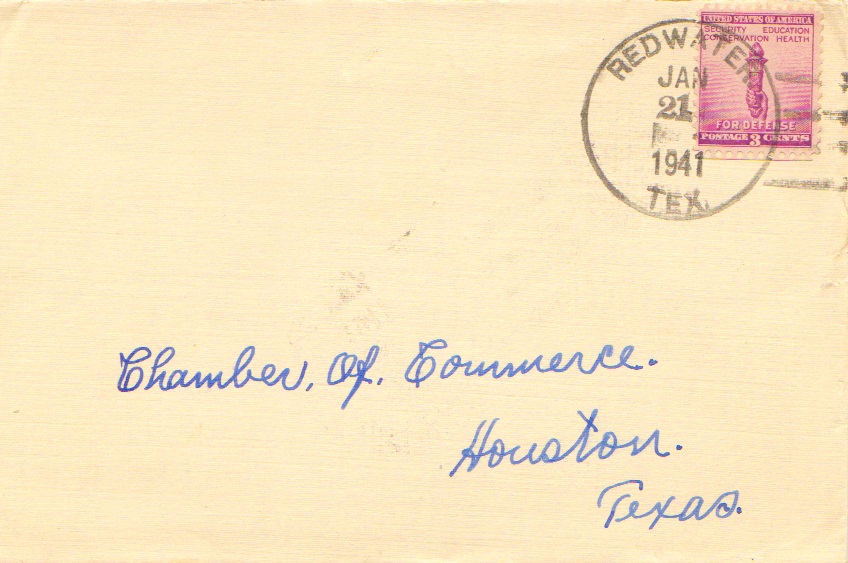 UNITED STATES OF AMERICA
SECURITY EDUCATION
CONSERVATION HEALTH
FOR DEFENSE
POSTAGE 3 CENTS
REDWATER
JAN
21
1941
TEX.
Chamber, Of, Commerce.
Houston.
Texas.